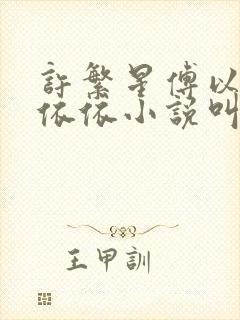 許繁星傅以
依依小說叫
王甲訓